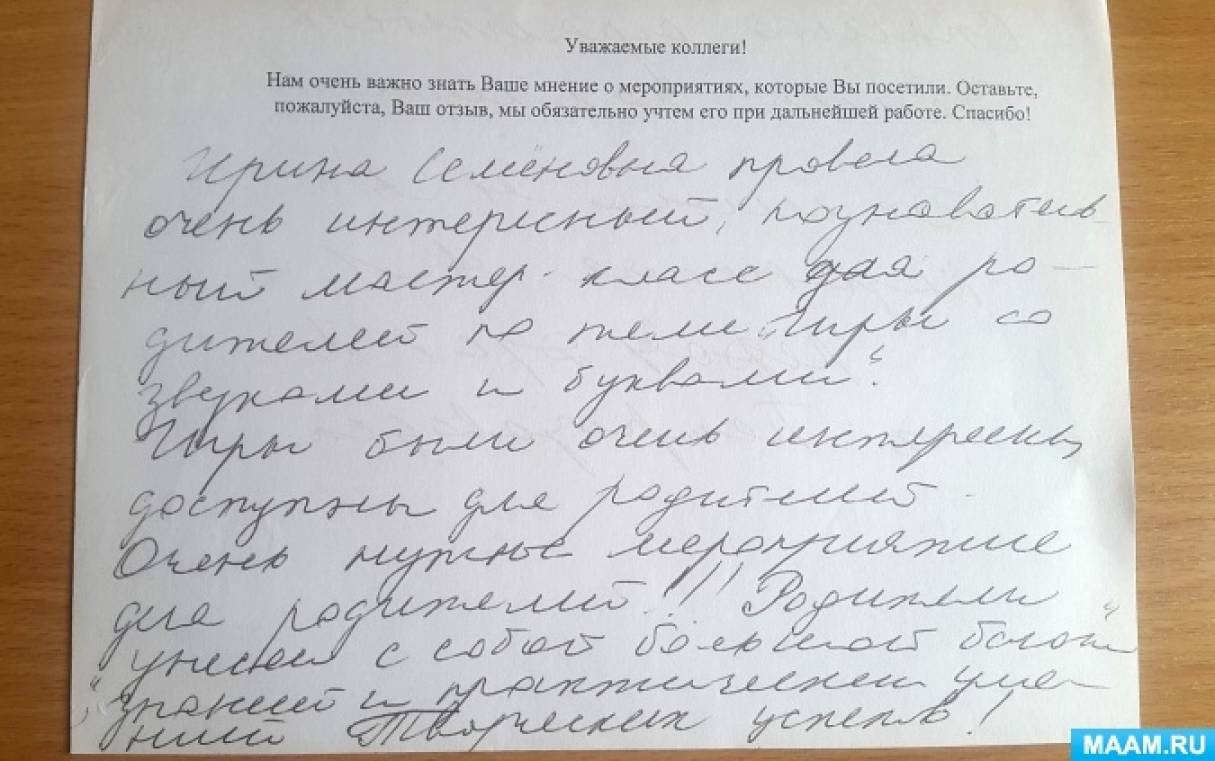 Уважаемые коллеги!
Нам очень важно знать Ваше мнение о мероприятиях, которые Вы посетили. Оставьте,
пожалуйста, Ваш отзыв, мы обязательно учтем его при дальнейшей работе. Спасибо!
Ирина Семёновна провела
очень интересный, познаватель-
ный мастер-класс для ро-
дителей по теме „Игры со
звуками и буквами“.
Игры были очень интересны,
доступны для родителей.
Очень нужное мероприятие
для родителей!!! Родители
унесли с собой большой багаж
знаний и практических уме-
ний Творческих успехов!
MAAM.RU